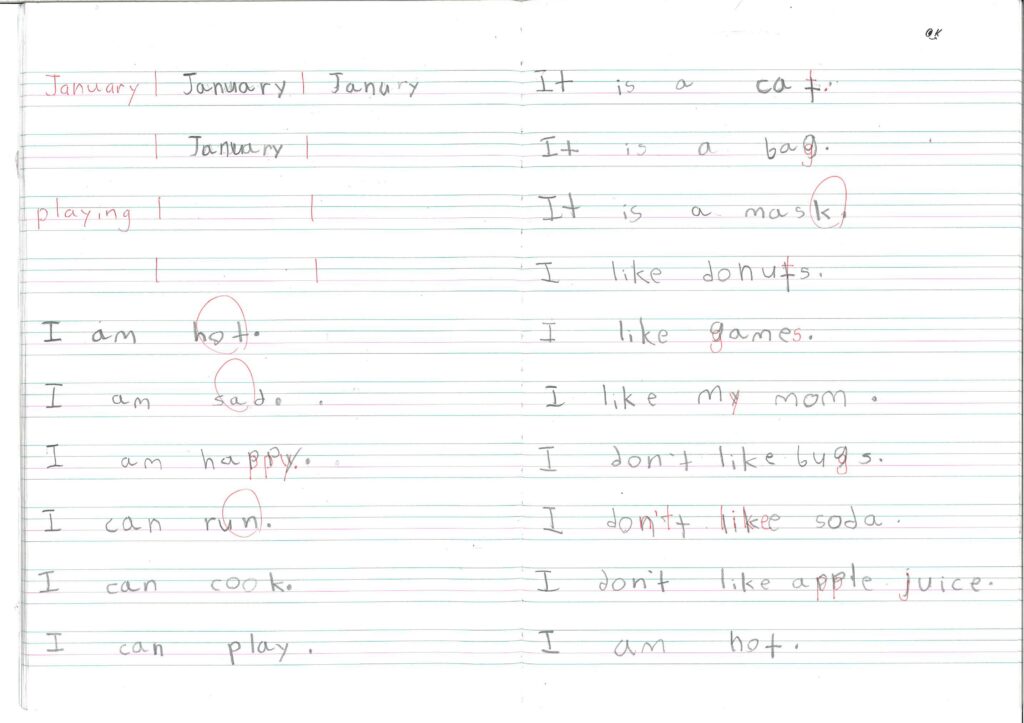 January January Janury
January
playing
I am hot.
I am sad. .
I am happy.
I can run.
I can cook.
I can play.
It is a cat..
It is a bag.
It is a mask.
I like donuts.
I like games.
I like my mom.
I don't like bugs.
I don't likee soda.
I don't like apple juice.
I am hot.